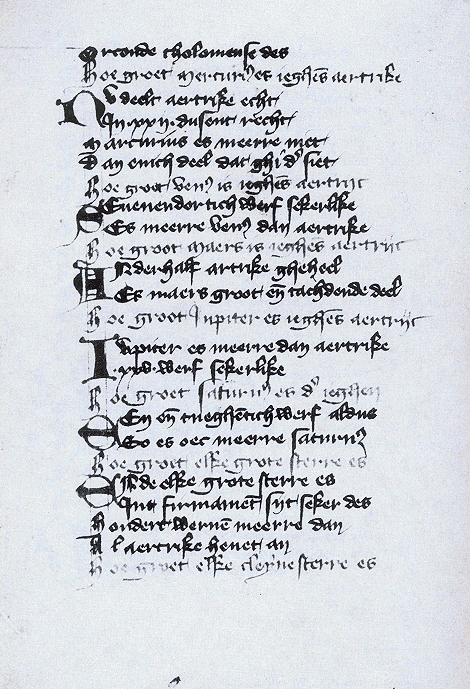 Orconde tholomeuse des
Hoe groet mercurius es ieghēs aertrike
Nv deelt aertrike echt
In .xx ij. dusent recht
Marcurius es meerre niet
Dan enich deel dat ghi d' siet
Hoe groot venꝰ is ieghēs aertrijc
SEuenendortich werf sekerlike
Es meerre venꝰ dan aertrike
Hoe groot maers is ieghēs aertrijc
ANderhalf artrike gheheel
Es maers groot eñ tachdende deel
Hoe groot Jupiter es ieghēs aertrijc
IVpiter es meerre dan aertrike
werf sekerlike
Hoe groet saturnꝰ es d' ieghen
EEn eñ tneghētich werf aldus
So es oec meerre saturnꝰ
Hoe groet elke grote sterre es
SInde elke grote sterre es
Int firmamēt sijt seker des
Hondert weruē meerre dan
Al aertrike heuet an
Hoe groet elke cleyne sterre es